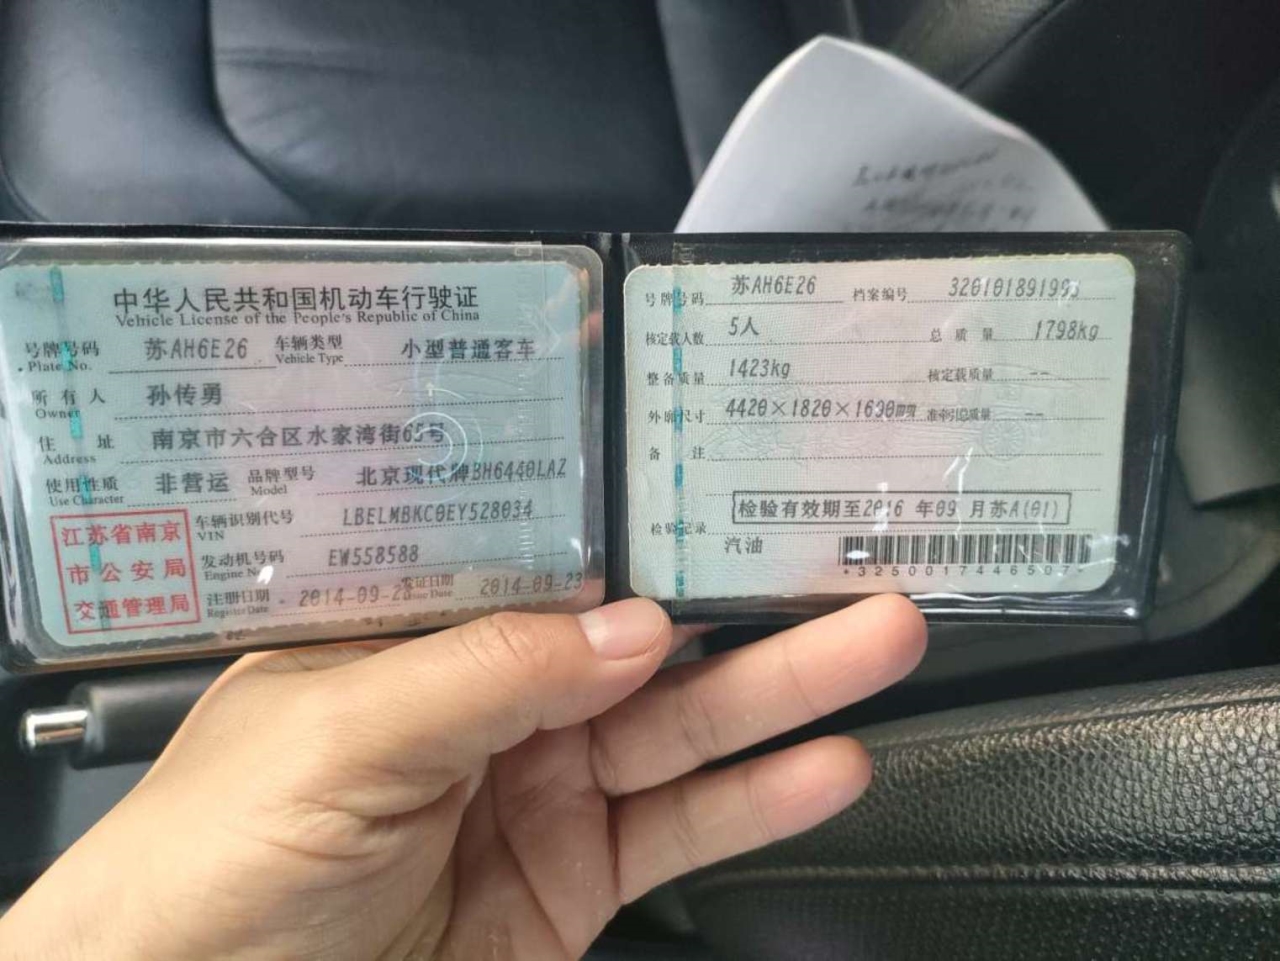 中华人民共和国机动车行驶证
Vehicle License of the People's Republic of China
号牌号码 苏AH6E26 车辆类型 小型普通客车
Plate No. Vehicle Type
所有人 孙传勇
Owner
住址 南京市六合区水家湾街65号
Address
使用性质 非营运 品牌型号 北京现代牌BH6440LAZ
Use Character Model
江苏省南京
市公安局
交通管理局
车辆识别代号 LBELMBKC0EY528034
VIN
发动机号码 EW558588
Engine No.
注册日期 2014-09-23 发证日期 2014-09-23
Register Date Issue Date
号牌号码 苏AH6E26 档案编号
核定载人数 5人 总质量 1798kg
整备质量 1423kg 核定载质量 --
外廓尺寸 4420×1820×1690mm 准牵引总质量 --
备注
检验有效期至2016年09月苏A(01)
检验记录
汽油
*3250017446507*